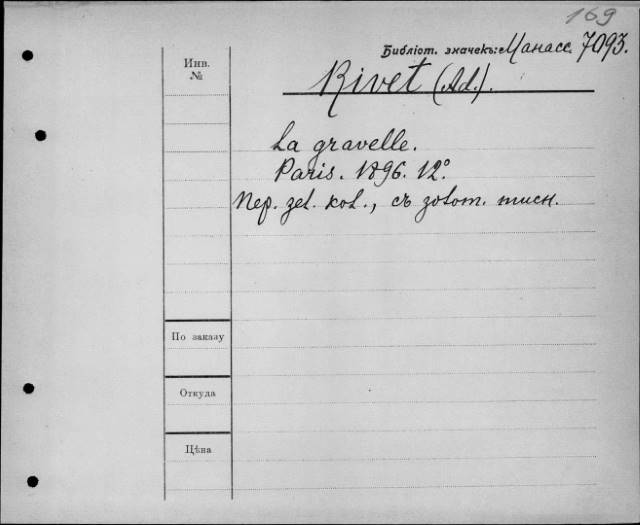 169
Библіот. значекъ: Манасс. 7093.
Инв.
№
Rivet (Ad.).
La gravelle.
Paris. 1896. 12°
Пер. зел. кол., съ золот. тисн.
По заказу
Откуда
Цѣна